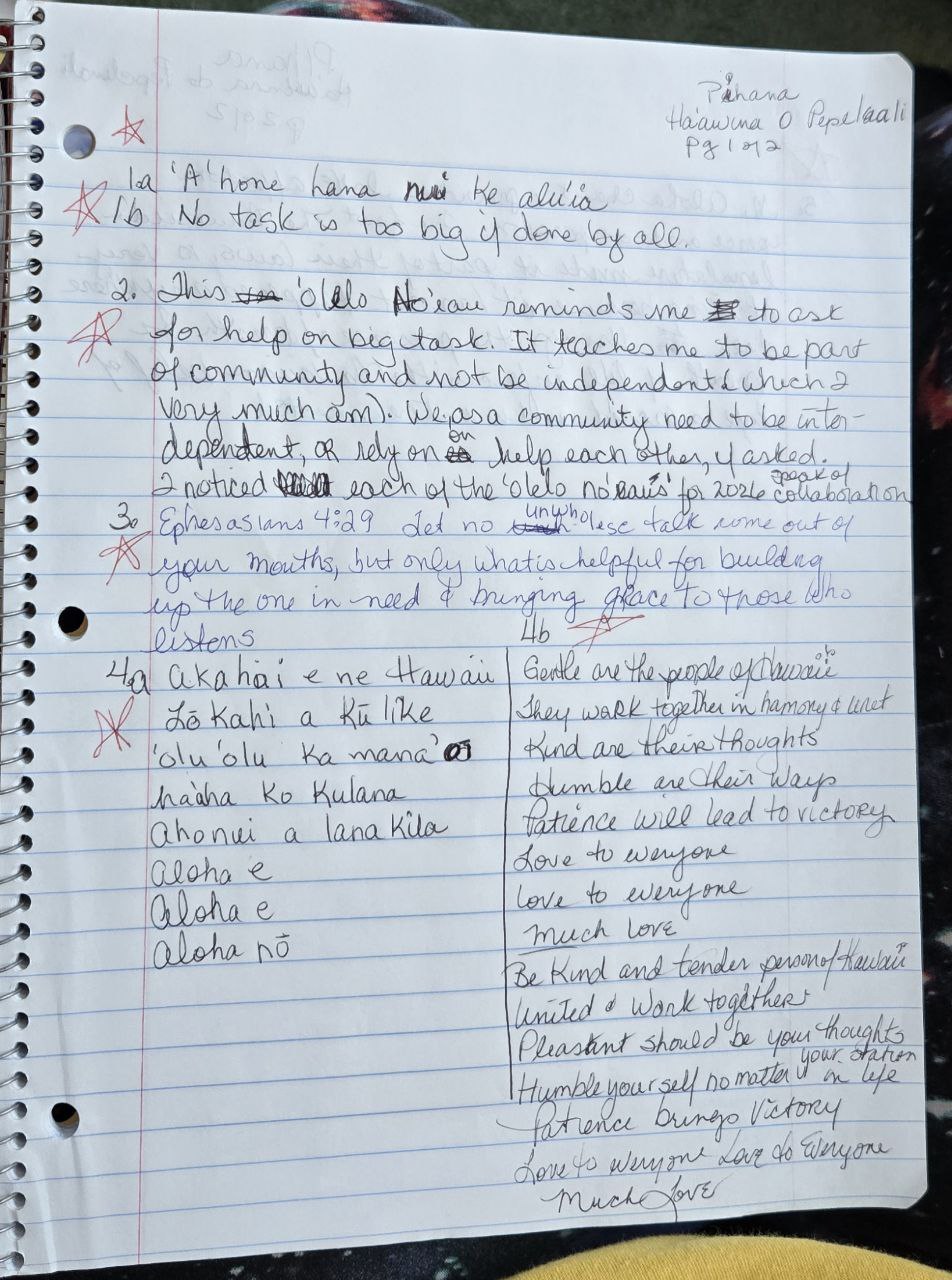 Pihana
Ha'awina O Pepeluali
Pg 1 of 2
1a 'A'hone hana nui ke alu'ia
1b No task is too big if done by all.
2. This 'Olelo No'eau reminds me to ask
for help on big task. It teaches me to be part
of community and not be independent (which I
very much am). We, as a community need to be inter-
dependent, or rely on on help each other, if asked.
I noticed each of the 'olelo no'eau's for 2026 speak of collaboration
3. Ephesasians 4:29 Let no unwholese talk come out of
your mouths, but only what is helpful for building
up the one in need & bringing grace to those who
listens
4a akahai e ne Hawaii
Lō Kahi a Kū like
'olu 'olu ka mana'o
ha'aha ko Kulana
Ahonui a lana kila
Aloha e
Aloha e
Aloha nō
4b
Gentle are the people of Hawaii
They work together in hamony &
Kind are their thoughts
Humble are their ways
Patience will lead to victory
Love to everyone
Love to everyone
Much love
Be Kind and tender person of Hawaii
United & work together
Pleasant should be your thoughts
Humble yourself no matter your station in life
Patience brings victory
Love to everyone Love to Everyone
Much Love